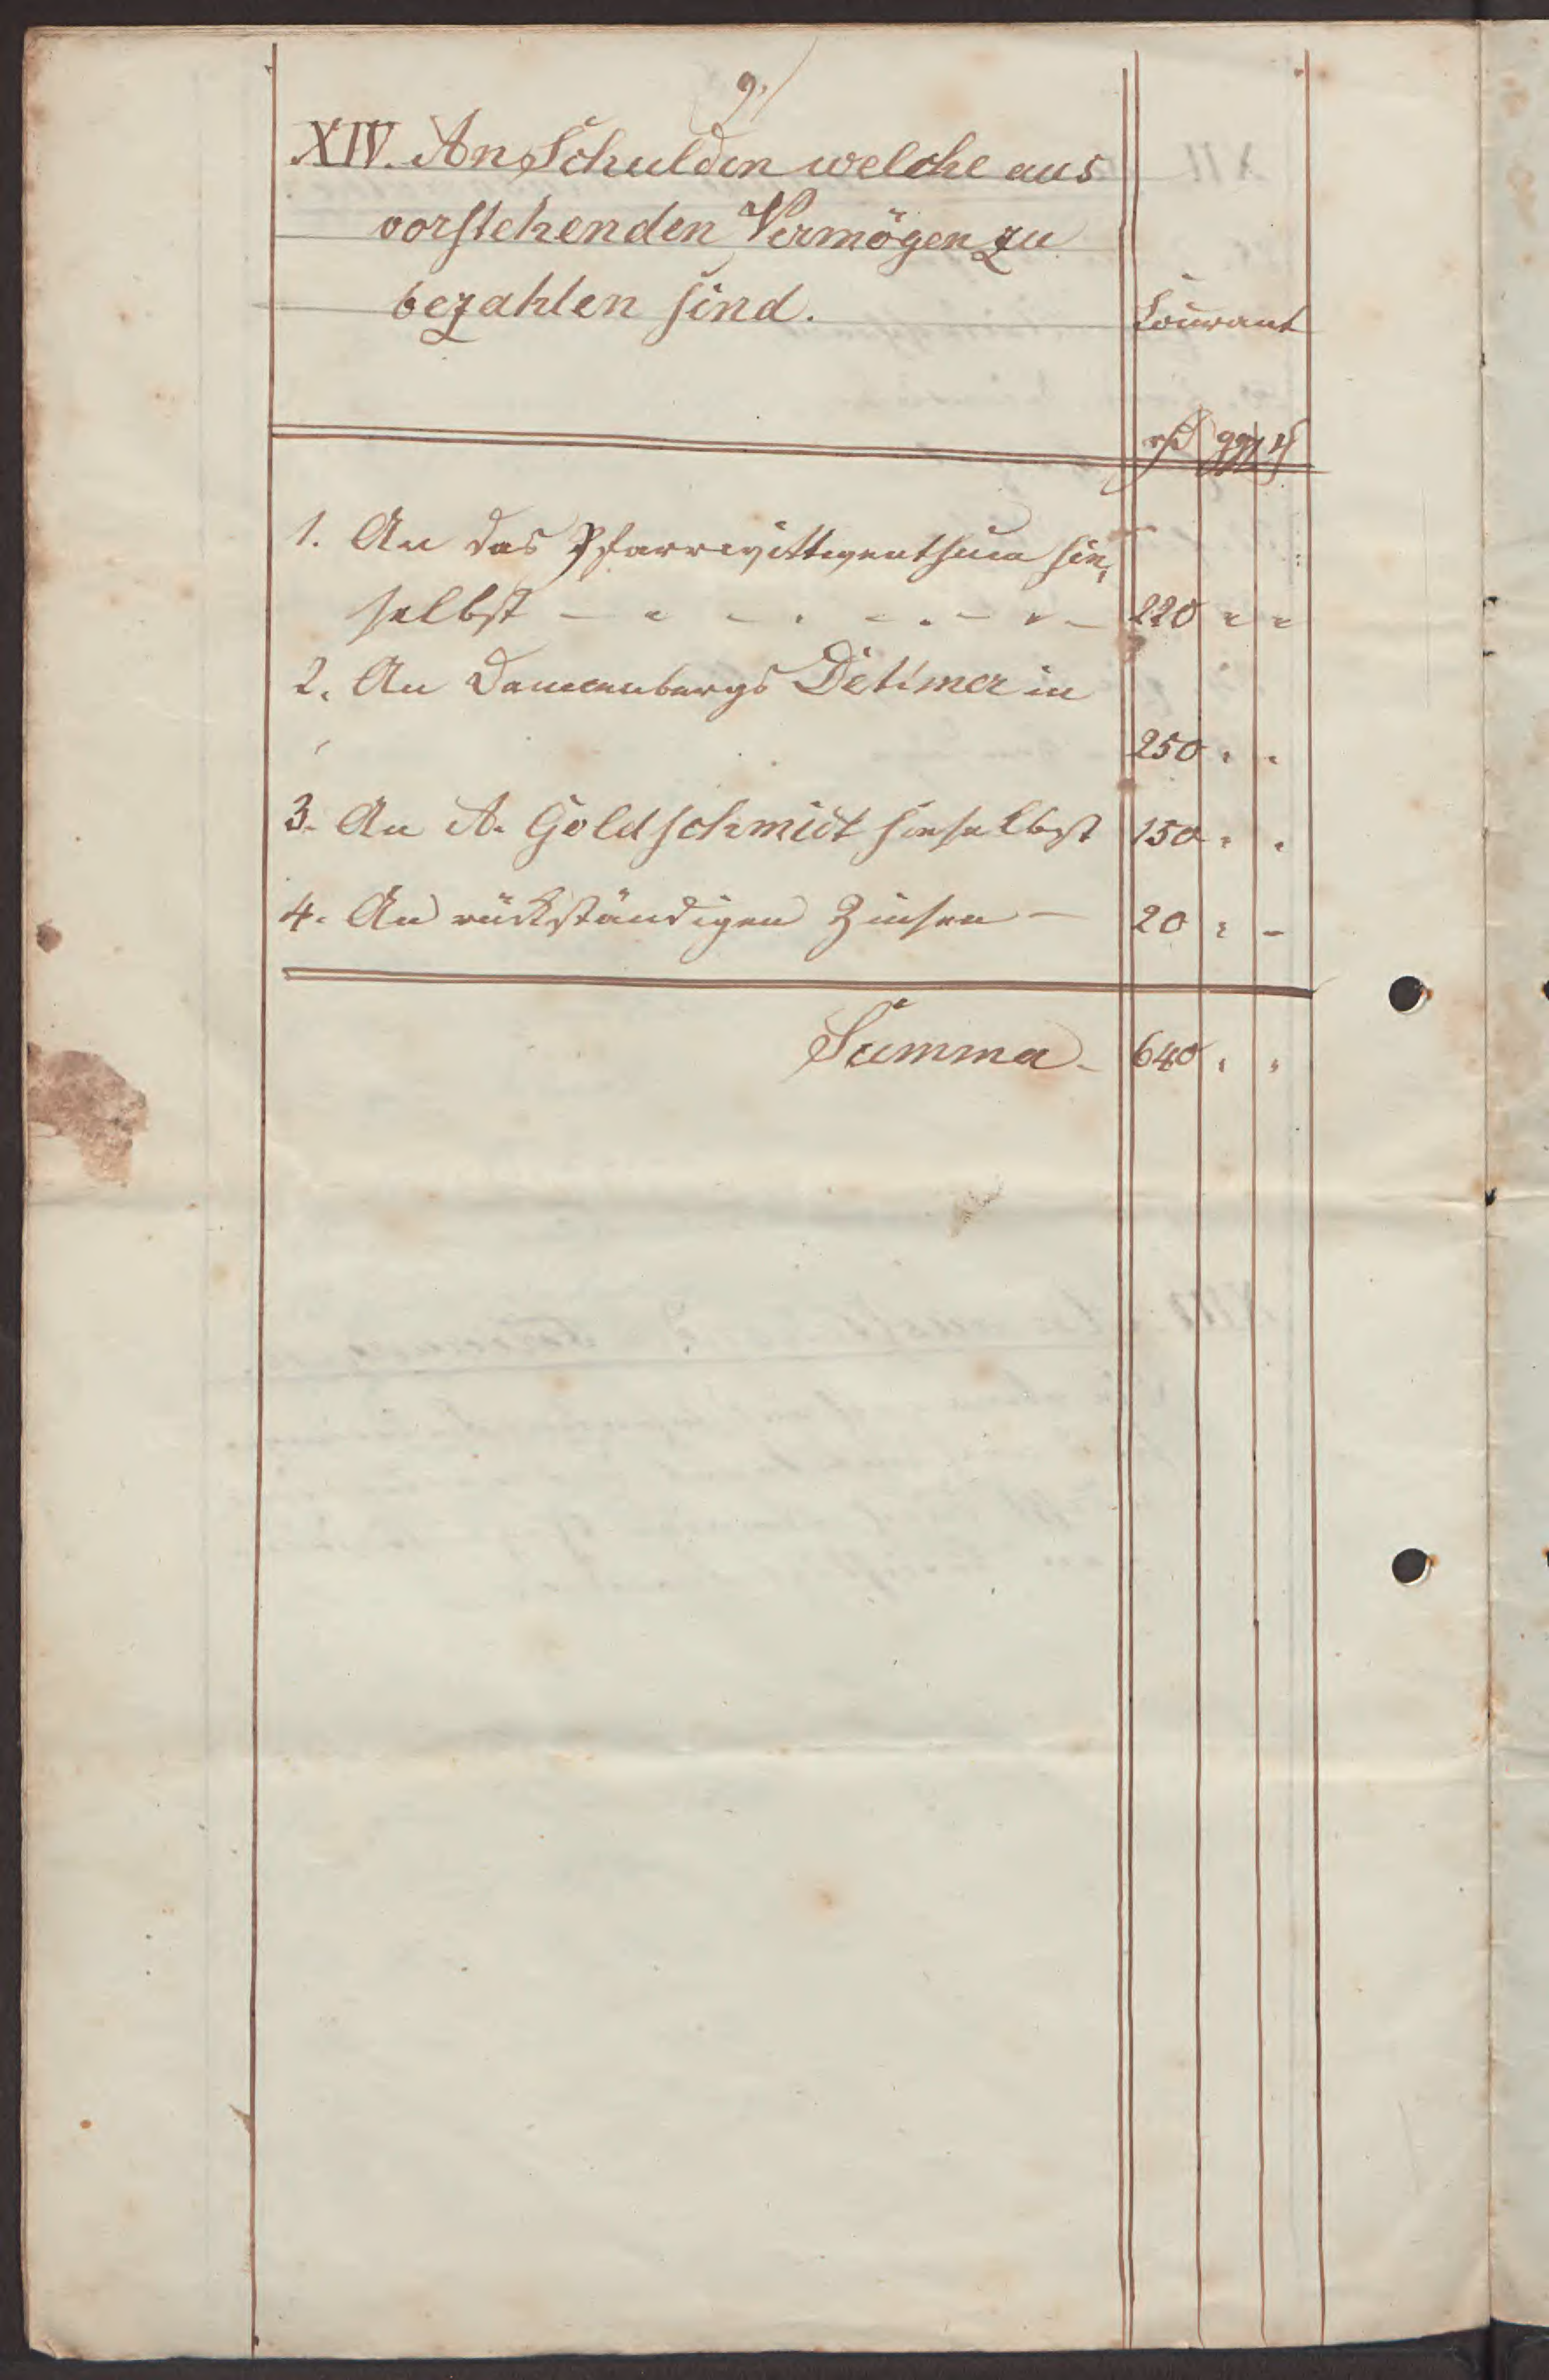 9.
XIV. An Schulden welche aus
vorstehenden Vermögen zu
bezahlen sind.
Courant
rh ggr ₰
1. An das Pfarrwittwenthum hie¬
selbst - - - - - - - - 220 " "
2. An Dannenbergs Detimer in
250 " "
3. An A. Goldschmidt hieselbst 150 " "
4. An rückständigen Zinsen - 20 " -
Summa - 640 " "